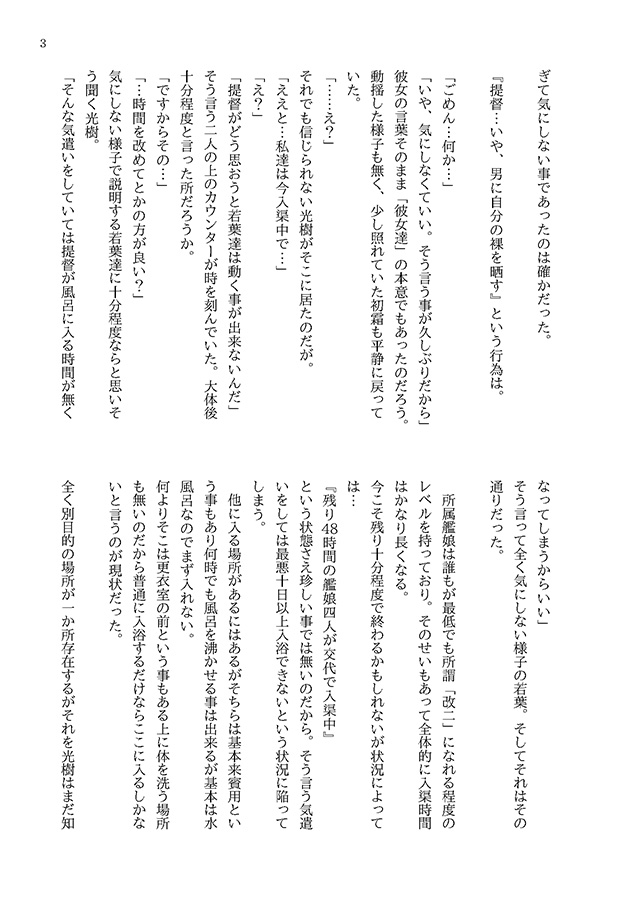 3
ぎて気にしない事であったのは確かだった。
『提督…いや、男に自分の裸を晒す』という行為は。
「ごめん…何か…」
「いや、気にしなくていい。そう言う事が久しぶりだから」
彼女の言葉そのまま「彼女達」の本意でもあったのだろう。
動揺した様子も無く、少し照れていた初霜も平静に戻って
いた。
「……え？」
それでも信じられない光樹がそこに居たのだが。
「ええと…私達は今入渠中で…」
「え？」
「提督がどう思おうと若葉達は動く事が出来ないんだ」
そう言う二人の上のカウンターが時を刻んでいた。大体後
十分程度と言った所だろうか。
「ですからその…」
「…時間を改めてとかの方が良い？」
気にしない様子で説明する若葉達に十分程度ならと思いそ
う聞く光樹。
「そんな気遣いをしていては提督が風呂に入る時間が無く
なってしまうからいい」
そう言って全く気にしない様子の若葉。そしてそれはその
通りだった。
所属艦娘は誰もが最低でも所謂「改二」になれる程度の
レベルを持っており。そのせいもあって全体的に入渠時間
はかなり長くなる。
今こそ残り十分程度で終わるかもしれないが状況によって
は…
『残り48時間の艦娘四人が交代で入渠中』
という状態さえ珍しい事では無いのだから。そう言う気遣
いをしては最悪十日以上入浴できないという状況に陥って
しまう。
他に入る場所があるにはあるがそちらは基本来賓用とい
う事もあり何時でも風呂を沸かせる事は出来るが基本は水
風呂なのでまず入れない。
何よりそこは更衣室の前という事もある上に体を洗う場所
も無いのだから普通に入浴するだけならここに入るしかな
いと言うのが現状だった。
全く別目的の場所が一か所存在するがそれを光樹はまだ知